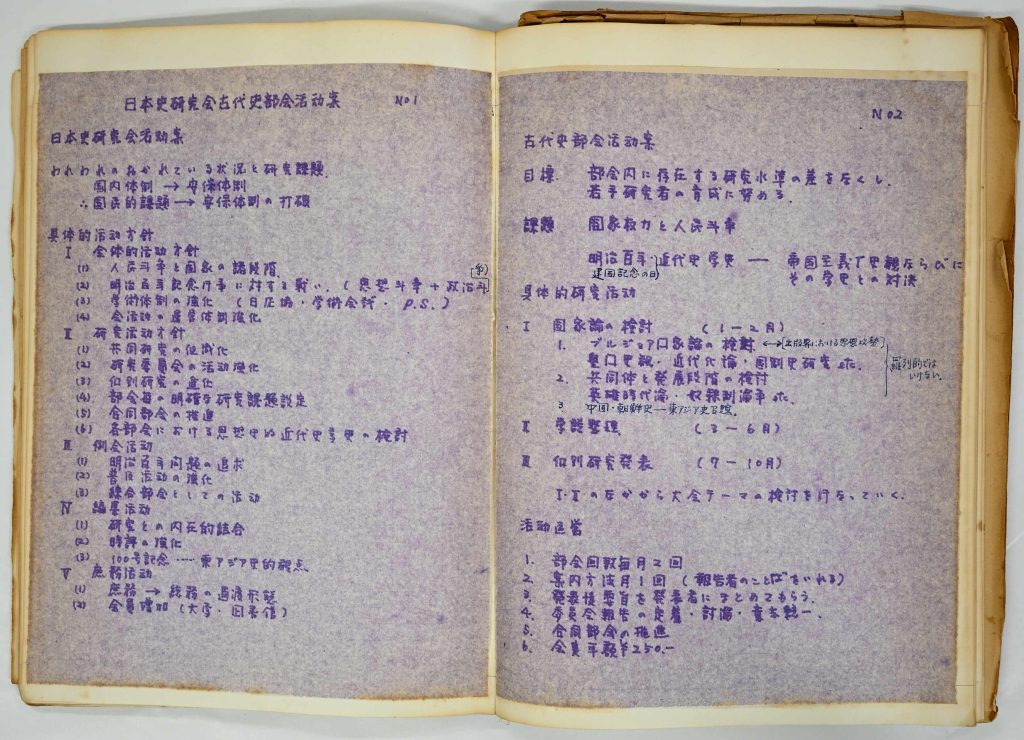 日本史研究会古代史部会活動案 No1
日本史研究会活動案
われわれのおかれている状況と研究課題.
国内体制 → 安保体制
∴国民的課題 → 安保体制の打破
具体的活動方針
I 全体的活動方針
(1) 人民斗争と国家の諸段階.
(2) 明治百年記念行事に対する戦い. (思想斗争+政治斗(争)
(3) 学術体制の強化 (日圧協・学術会議・P.S.)
(4) 会活動の運営体制強化
II 研究活動方針
(1) 共同研究の組織化
(2) 研究委員会の活動強化
(3) 個別研究の進化
(4) 部会毎の明確な研究課題設定
(5) 合同部会の推進
(6) 各部会における思想史的近代史学史の検討
III 例会活動
(1) 明治百年問題の追求
(2) 普及活動の強化
(3) 綜合部会としての活動
IV 編集活動
(1) 研究との内在的結合
(2) 時評の強化
(3) 100号記念……東アジア史的観点
V 庶務活動
(1) 庶務 → 総務の過渡形態
(2) 会員増加 (大学・図書館)
No.2
古代史部会活動案
目標. 部会内に存在する研究水準の差をなくし.
若手研究者の育成に努める.
課題 国家权力と人民斗争
明治百年 近代史学史 ── 帝国主義丁史観ならびに
建国記念の日 その学史との対決
具体的研究活動
I 国家論の検討 (1−2月)
1. ブルジョア口家論の検討. ⟷ 出版界における思想攻勢
皇口史観・近代化論・国別史研究 etc.
羅列的ではいけない.
2. 共同体と発展段階の検討
英雄時代論・奴隷制論争 etc.
3 中国・朝鮮史─東アジア史の問題.
II 学説整理 (3−6月)
III 個別研究発表 (7−10月)
I・IIのなかから大会テーマの検討を行なっていく.
活動運営
1. 部会回数毎月2回
2. 案内方法月1回 (報告者のことばをいれる)
3. 発表後要旨を発表者にまとめてもらう.
4. 委員会報告の定着・討論・意志統一.
5. 合同部会の推進
6. 会費年額¥250.−